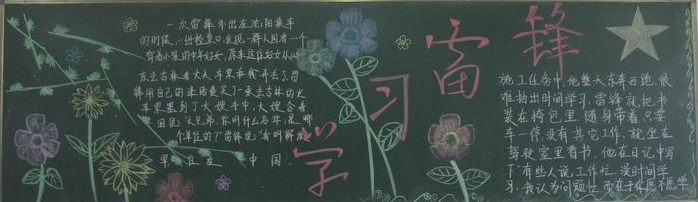 学习雷锋
一次雷锋外出在沈阳换车
的时候,一出检票口,发现一群人围着一个
背着小孩的中年妇女,原来这位妇女从山
东去吉林看丈夫,车票和钱丢了。雷
锋用自己的津贴费买了一张去吉林的火
车票塞到大嫂手中,大嫂含着
泪说:“大兄弟,你叫什么名字,是哪
个单位的?”雷锋说:“我叫解放
军,就住在中国。”
施工任务中,他整天东奔西跑,很
难抽出时间学习,雷锋就把书
装在挎包里,随身带着,只要
车一停,没有其它工作,就坐在
驾驶室里看书。他在日记中写
下:有些人说工作忙,没时间学
习,我认为问题不在工作忙,而在于你愿不愿学